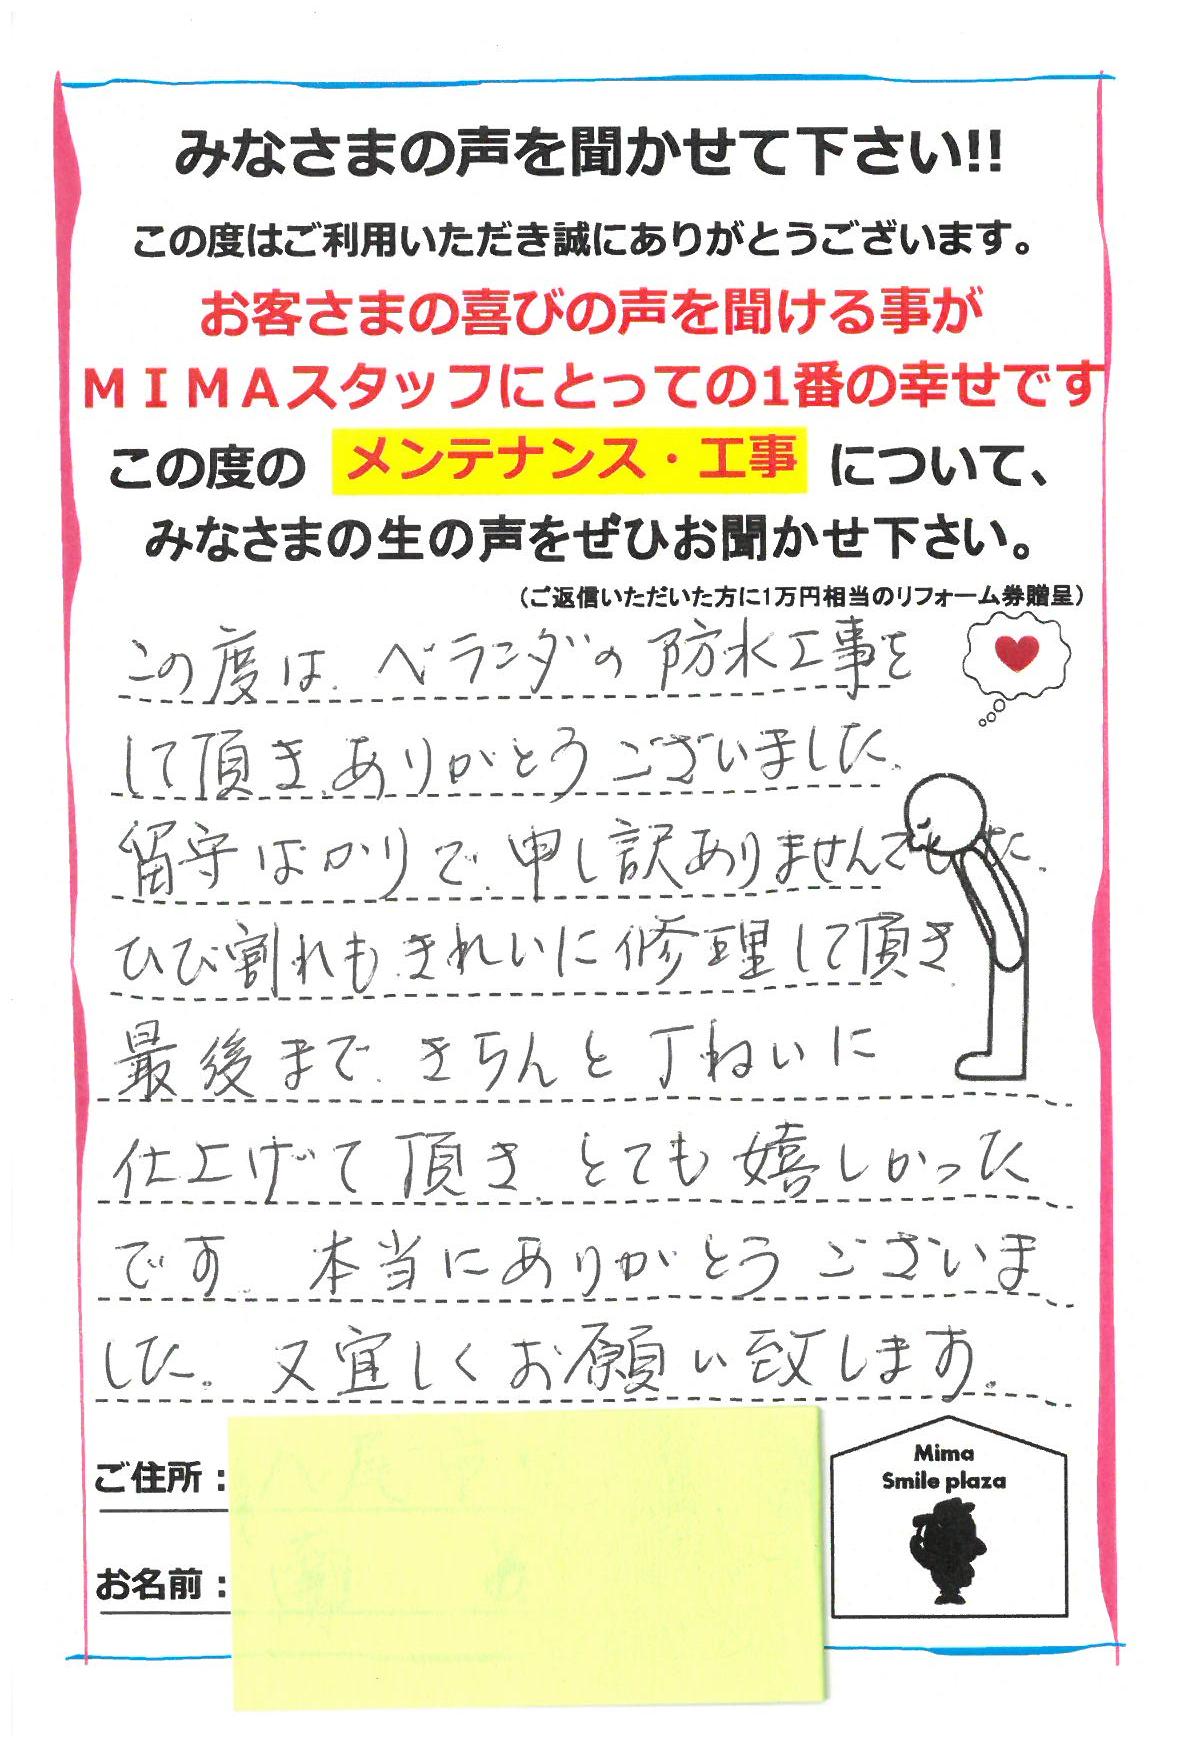 みなさまの声を聞かせて下さい!!
この度はご利用いただき誠にありがとうございます。
お客さまの喜びの声を聞ける事が
ＭＩＭＡスタッフにとっての1番の幸せです
この度の メンテナンス・工事 について、
みなさまの生の声をぜひお聞かせ下さい。
（ご返信いただいた方に1万円相当のリフォーム券贈呈）
この度は、ベランダの防水工事を
して頂き、ありがとうございました。
留守ばかりで、申し訳ありませんでした。
ひび割れもきれいに修理して頂き、
最後まで、きちんと丁ねいに
仕上げて頂き、とても嬉しかった
です。本当にありがとうございま
した。又宜しくお願い致します。
ご住所：
お名前：
Mima
Smile plaza